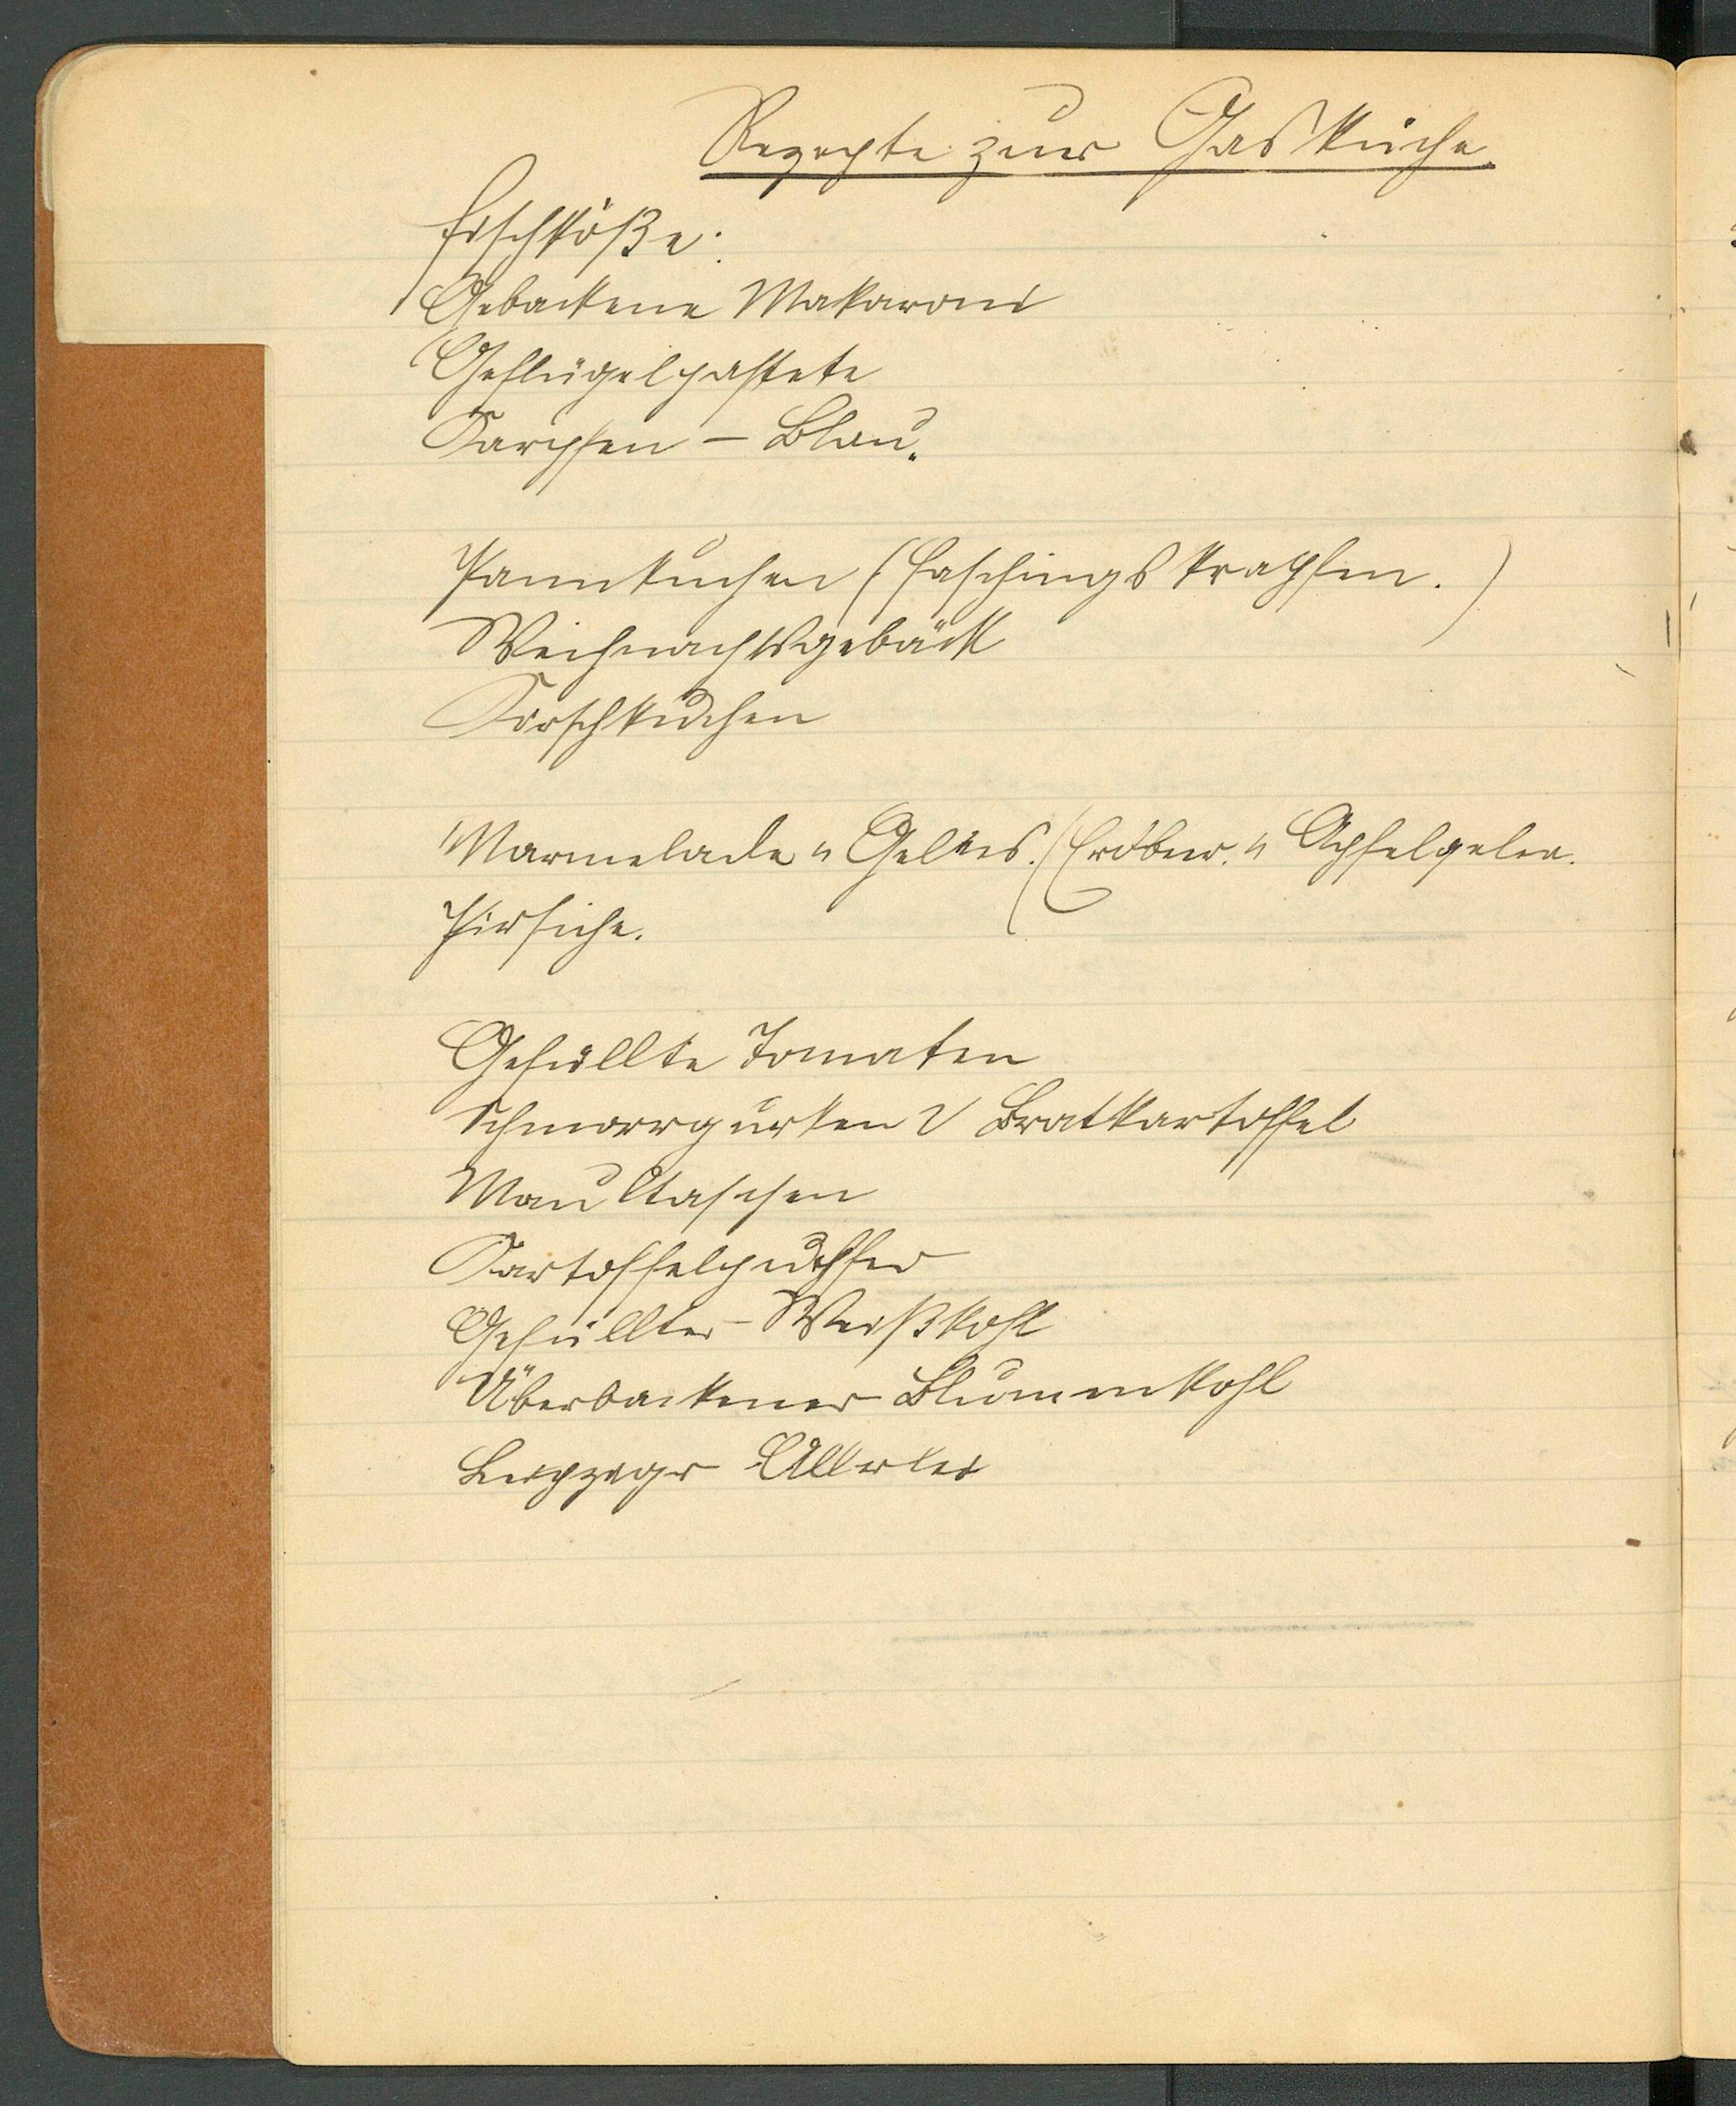 Rezepte zur Gasküche.
Fischklöße.
Gebackene Makaroni
Geflügelpastete
Karpfen - Blau.
Pfannkuchen (Faschingskrapfen.)
Weihnachtsgebäck
Kirschkuchen
Marmelade u Gelees. (Erdbeer. u Apfelgelee.
Pfirsiche.
Gefüllte Tomaten
Schmorrgurken u Bratkartoffel
Maultaschen
Kartoffelpuffer
Gefüllter Weißkohl
Überbackener Blumenkohl
Leipziger Allerlei